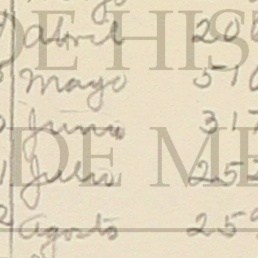 abril 200
Mayo 510
Junio 317
Julio 252
Agosto 259
DE HIS
DE ME